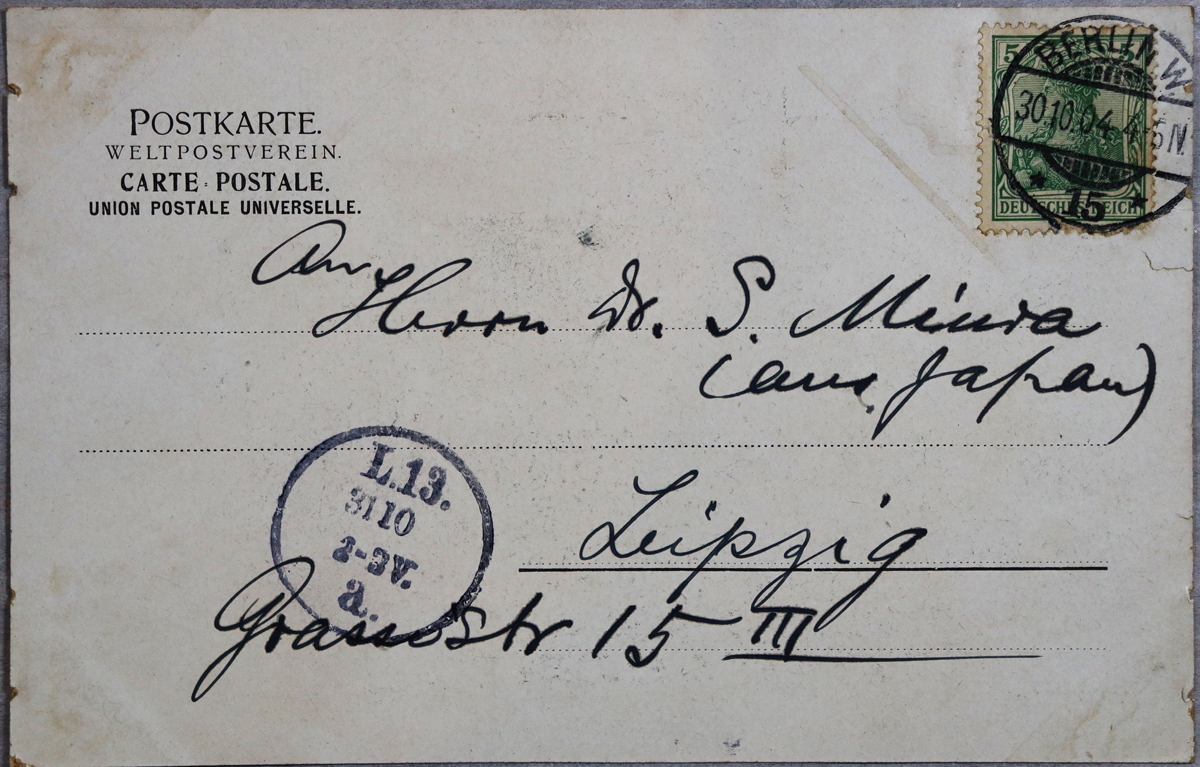 POSTKARTE.
WELTPOSTVEREIN.
CARTE POSTALE.
UNION POSTALE UNIVERSELLE.
5 5
DEUTSCHES REICH
BERLIN.W.
30.10.04. 4-5N.
* 15 *
An
Herrn Dr. S. Miura
(aus Japan)
L.13.
31 10
2-3V.
a.
Leipzig
Grassistr 15 III